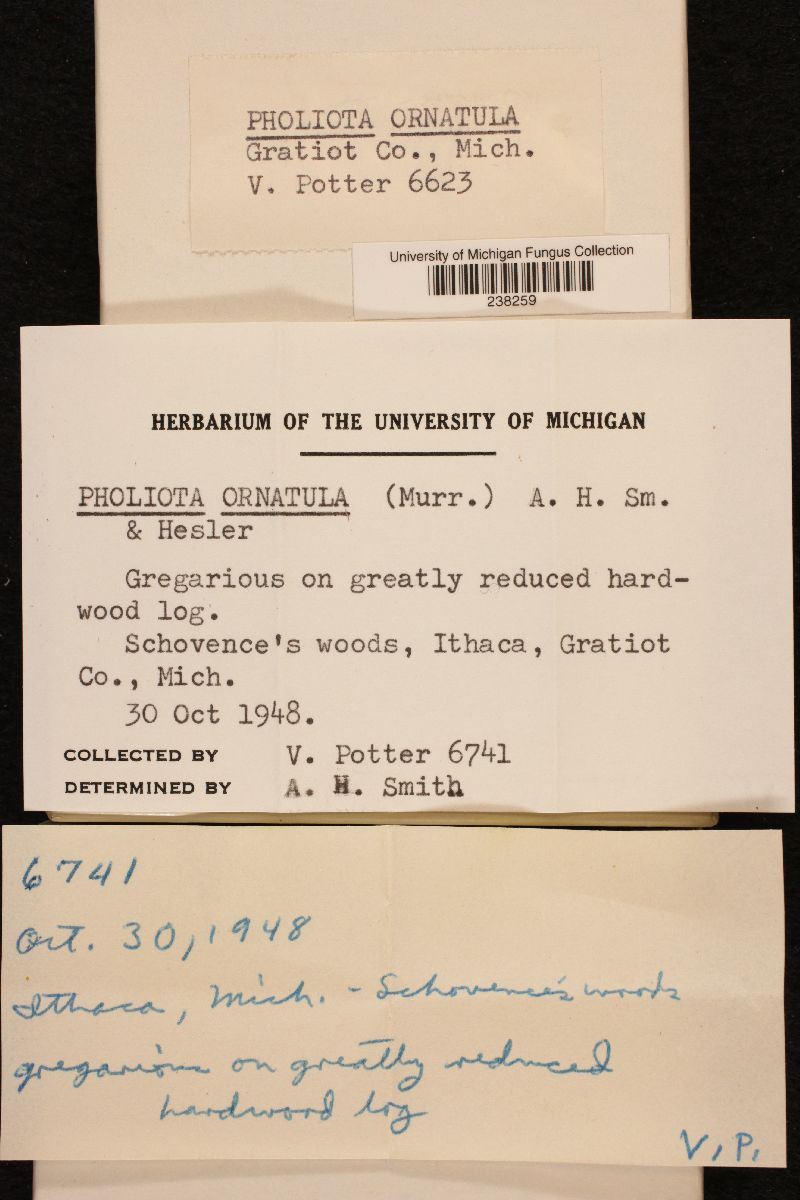 PHOLIOTA ORNATULA
Gratiot Co., Mich.
V. Potter 6623
University of Michigan Fungus Collection
238259
HERBARIUM OF THE UNIVERSITY OF MICHIGAN
PHOLIOTA ORNATULA (Murr.) A. H. Sm.
& Hesler
Gregarious on greatly reduced hard-
wood log.
Schovence's woods, Ithaca, Gratiot
Co., Mich.
30 Oct 1948.
COLLECTED BY V. Potter 6741
DETERMINED BY A. H. Smith
6741
Oct. 30, 1948
Ithaca, Mich. - Schovence's woods
gregarious on greatly reduced
hardwood log
V.P.